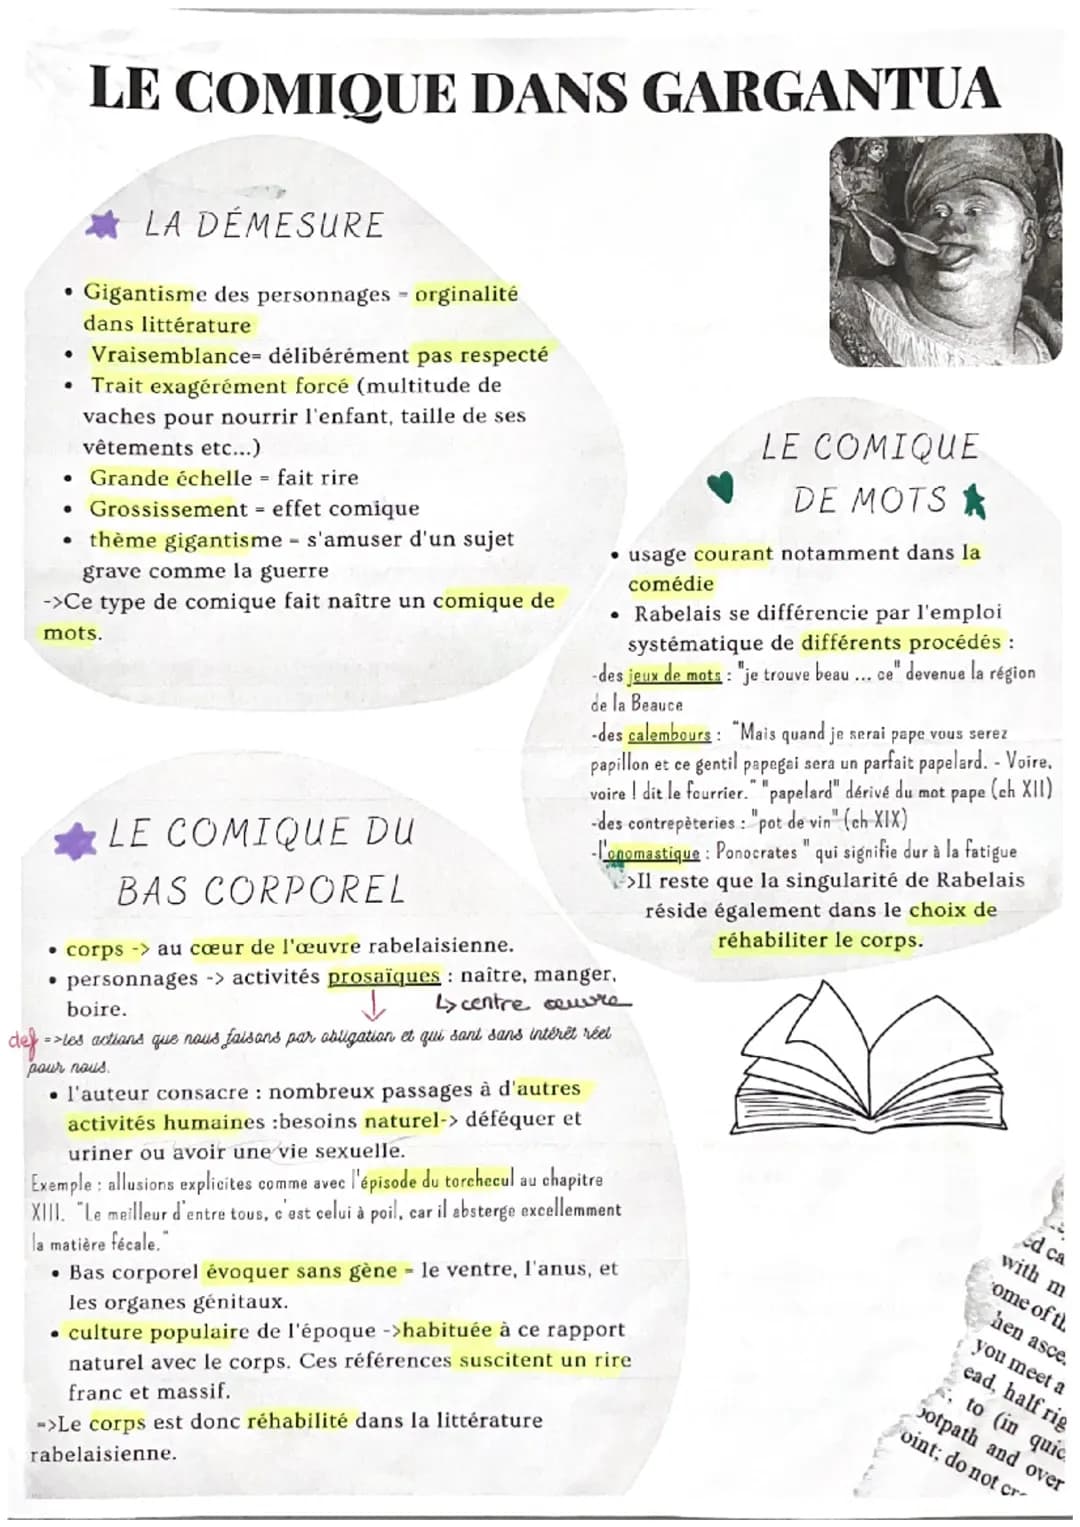 LE COMIQUE DANS GARGANTUA
LA DÉMESURE
• Gigantisme des personnages = orginalité
dans littérature
• Vraisemblance= délibérément pas respecté
• Trait exagérément forcé (multitude de
vaches pour nourrir l'enfant, taille de ses
vêtements etc...)
• Grande échelle = fait rire
• Grossissement = effet comique
• thème gigantisme = s'amuser d'un sujet
grave comme la guerre
->Ce type de comique fait naître un comique de
mots.
LE COMIQUE
DE MOTS
• usage courant notamment dans la
comédie
• Rabelais se différencie par l'emploi
systématique de différents procédés :
-des jeux de mots : "je trouve beau ... ce" devenue la région
de la Beauce
-des calembours : "Mais quand je serai pape vous serez
papillon et ce gentil papegai sera un parfait papelard. - Voire,
voire ! dit le fourrier." "papelard" dérivé du mot pape (ch XII)
-des contrepèteries : "pot de vin" (ch XIX)
-l'onomastique : Ponocrates " qui signifie dur à la fatigue
->Il reste que la singularité de Rabelais
réside également dans le choix de
réhabiliter le corps.
LE COMIQUE DU
BAS CORPOREL
• corps -> au cœur de l'œuvre rabelaisienne.
• personnages -> activités prosaïques : naître, manger,
boire.
↳ centre œuvre
def =>les actions que nous faisons par obligation et qui sont sans intérêt réel
pour nous.
• l'auteur consacre : nombreux passages à d'autres
activités humaines :besoins naturel-> déféquer et
uriner ou avoir une vie sexuelle.
Exemple : allusions explicites comme avec l'épisode du torchecul au chapitre
XIII. "Le meilleur d'entre tous, c'est celui à poil, car il absterge excellemment
la matière fécale."
• Bas corporel évoquer sans gène = le ventre, l'anus, et
les organes génitaux.
• culture populaire de l'époque ->habituée à ce rapport
naturel avec le corps. Ces références suscitent un rire
franc et massif.
=>Le corps est donc réhabilité dans la littérature
rabelaisienne.
ed ca
with m
ome of th
hen asce
you meet a
ead, half rig
to (in quic
ootpath and over
oint; do not cr